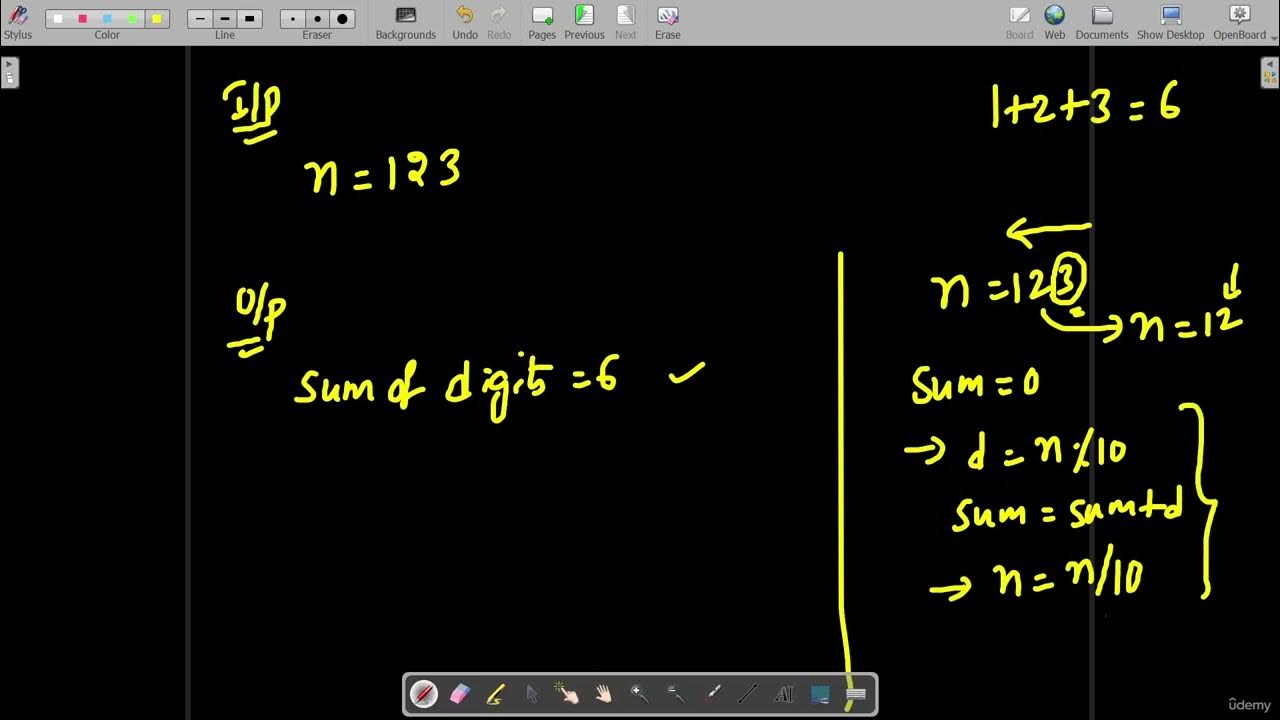 Stylus Color Line Eraser Backgrounds Undo Redo Pages Previous Next Erase Board Web Documents Show Desktop OpenBoard
I/p
1+2+3=6
n=123
n=123
n=12
O/p
sum of digits=6 ✓
sum=0
→ d=n%10
sum=sum+d
→ n=n/10
AI
ûdemy